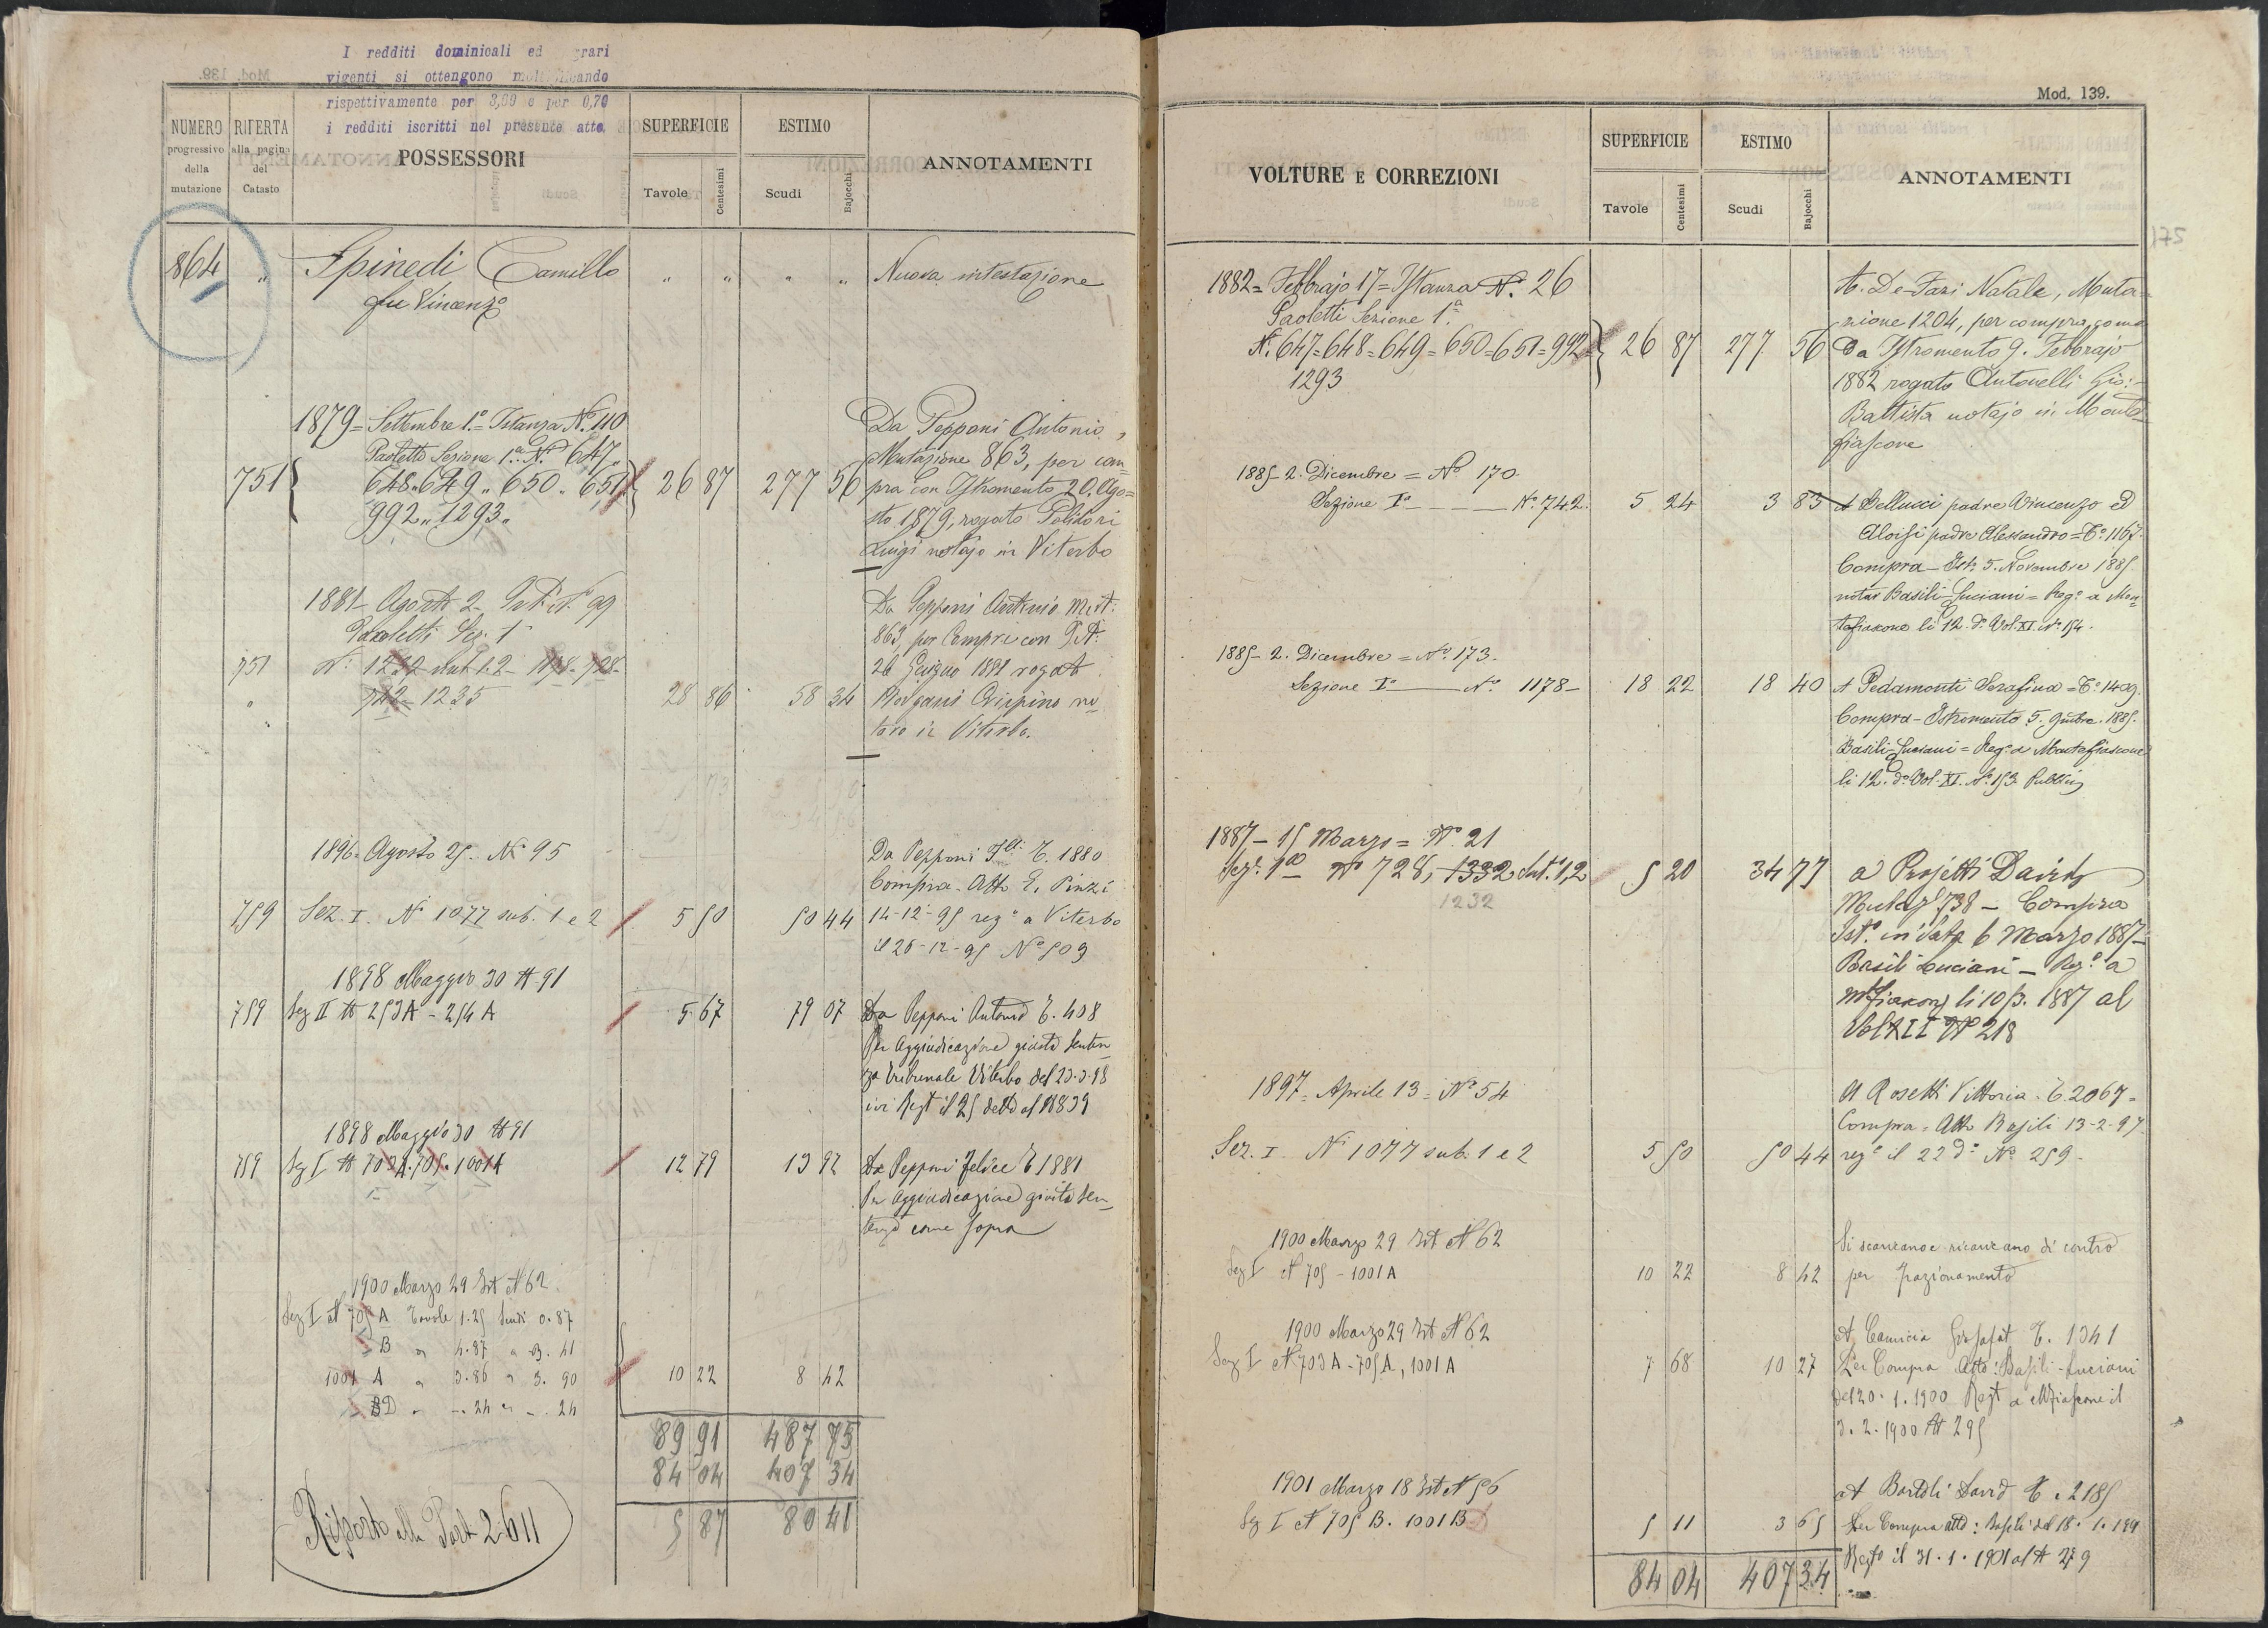 I redditi dominicali ed grari
vigenti si ottengono
rispettivamente per 3,00 e per 0,70
i redditi iscritti nel presente atto.
NUMERO
progressivo
della
mutazione
RIFERTA
alla pagina
del
Catasto
POSSESSORI
SUPERFICIE
Tavole
Centesimi
ESTIMO
Scudi
Bajocchi
ANNOTAMENTI
864 " Spinedi Camillo " " " " Nuova intestazione
fu Vincenzo
1879 = Settembre 1.° = Istanza N.° 110
Paoletti Sezione 1.a N.° 647"
751 648" 649" 650" 651 26 87 277 56
992" 1293"
Da Pepponi Antonio,
Mutazione 863, per com=
pra con Istromento 20. Ago=
sto 1879, rogato Polidori
Luigi notajo in Viterbo
1881 - Agosto 2 - Ist. N. 99
Paoletti Sez. 1
751 N: 1232 sub 1.2 - 1178 - 728
" 742 - 1235 28 86 58 34
Da Pepponi Antonio Mut:
863, per Compra con Ist:
26 Giugno 1881 rogat
Borgassi Crispino no
taro in Viterbo.
1896. Agosto 25. N° 95
759 Sez. I. N° 1077 sub. 1 e 2 5 50 50 44
Da Pepponi F.lli T. 1880
Compra. Atto E. Pinzi
14-12-95 reg° a Viterbo
il 26-12-95 N° 509
1898 Maggio 30 N 91
759 Sez II N 253A - 254A 5 67 79 07
Da Pepponi Antonio T. 408
Per Aggiudicazione giusta senten
za Tribunale Viterbo del 23.3.98
ivi Regt il 25 detto al N 839
1898 Maggio 30 N 91
759 Sez I N 703A. 705. 1001A 12 79 13 92
Da Pepponi Felice T 1881
Per aggiudicazione giusta sen
tenza come sopra
1900 Marzo 29 Ist N 62
Sez I N 705 A Tavole 1.25 Scudi 0.87
B " 4.87 " 3.41
1001 A " 3.86 " 3.90 10 22 8 42
BD " -.24 " -.24
89 91 487 75
84 04 407 34
5 87 80 41
Risporto alla Part 2611
Mod. 139.
VOLTURE E CORREZIONI
SUPERFICIE
Tavole
Centesimi
ESTIMO
Scudi
Bajocchi
ANNOTAMENTI
175
1882 = Febbrajo 17 = Istanza N.° 26
Paoletti Sezione 1.a
N. 647 = 648 = 649 = 650 = 651 = 992 26 87 277 56
1293
A. De-Fazi Natale, Muta=
zione 1204, per compra, come
Da Istromento 9. Febbrajo
1882 rogato Antonelli Gio:-
Battista notajo in Monte
fiascone
1885- 2. Dicembre = N° 170
Sezione I° - - - - N.° 742. 5 24 3 83
A Bellucci padre Vincenzo ed
Aloisi padre Alessandro = T° 1167.
Compra - Ist° 5. Novembre 1885
notar Basili-Luciani = Reg° a Mon
tefiascone li 12. d° Vol. XI. N° 154.
1885- 2. Dicembre = N° 173.
Sezione I° - N° 1178 - 18 22 18 40
A Pedamonti Serafina = T° 1409.
Compra - Istromento 5. 9mbre. 1885.
Basili-Luciani = Reg° a Montefiascone
li 12. d° Vol. XI. N° 153
1887 - 15 Marzo = N° 21
Sez° 1a N° 728, 1332 sub. 1,2 5 20 34 77
1232
a Projetti David
Mutaz° 738 - Compra
Ist° in data 6 Marzo 1887-
Basili Luciani - Reg° a
Mtefiascone li 10/3. 1887 al
Vol XII N° 218
1897 = Aprile 13 = N° 54
Sez. I N° 1077 sub. 1 e 2 5 50 50 44
A Rosetti Vittoria. T. 2067 =
Compra = Atto Basili 13-2-97
reg° il 22 d° N° 259 -
1900 Marzo 29 Ist N 62
Sez I N 705 - 1001A 10 22 8 42
Si scaricano e ricaricano di contro
per frazionamento
1900 Marzo 29 Ist N 62
Sez I N 703A - 705A, 1001A 7 68 10 27
A Camicia Giosafat T. 1341
Per Compra Atto: Basili-Luciani
del 20. 1. 1900 Regt a Mfiascone il
3. 2. 1900 N 295
1901 Marzo 18 Ist N 56
Sez I N 705 B. 1001B 5 11 3 65
A Bartoli David T. 2185
Per Compra atto: Basili del 18. 1.
Regto il 31. 1. 1901 al N 279
84 04 407 34